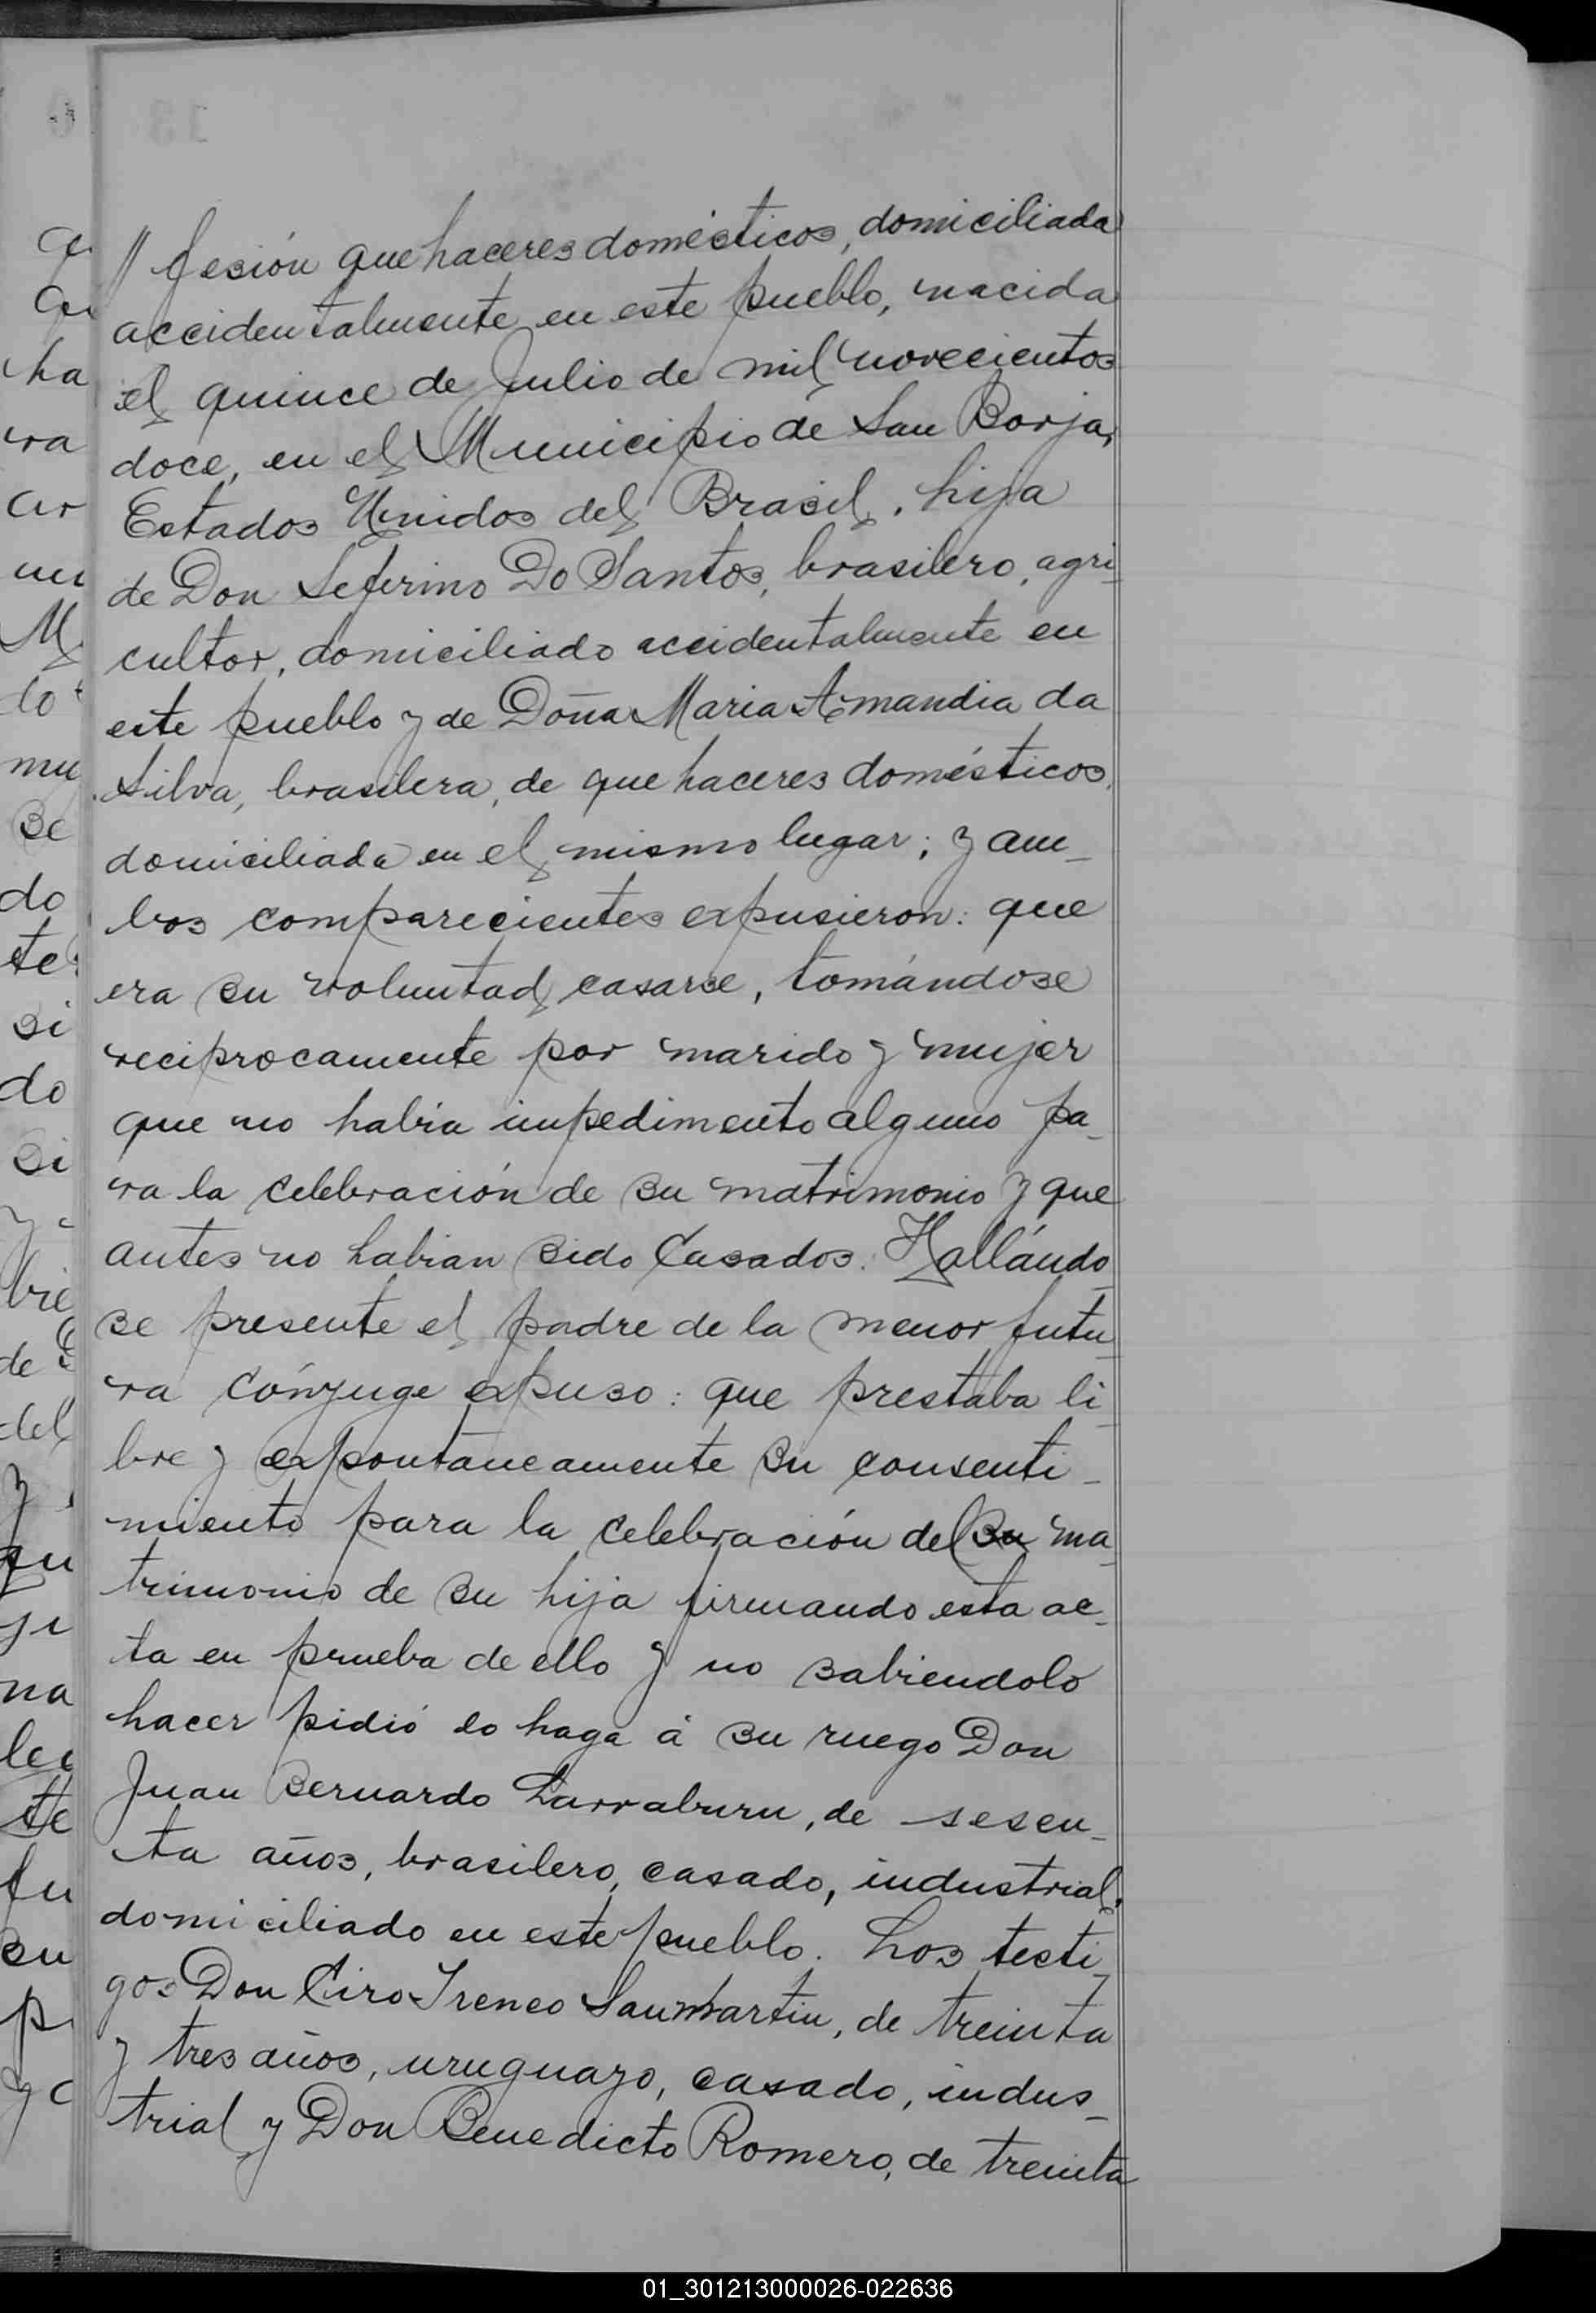 // fesión que haceres domésticos, domiciliada
accidentalmente en este pueblo, nacida
el quince de Julio de mil novecientos
doce, en el Municipio de San Borja,
Estados Unidos del Brasil, hija
de Don Seferino Do Santos, brasilero, agri-
cultor, domiciliado accidentalmente en
este pueblo y de Doña Maria Amandia da
Silva, brasilera, de que haceres domésticos,
domiciliada en el mismo lugar; y am-
bos comparecientes expusieron: que
era su voluntad casarse, tomándose
reciprocamente por marido y mujer
que no habia impedimento alguno pa-
ra la celebración de su matrimonio y que
antes no habian sido casados. Hallándo-
se presente el padre de la menor futu-
ra cónyuge expuso: que prestaba li-
bre y expontáneamente su consenti-
miento para la celebración del su ma-
trimonio de su hija firmando esta ac-
ta en prueba de ello y no sabiendolo
hacer pidió lo haga á su ruego Don
Juan Bernardo Larraburu, de sesen-
ta años, brasilero, casado, industrial,
domiciliado en este pueblo. Los testi-
gos Don Ciro Ireneo Sanmartin, de treinta
y tres años, uruguayo, casado, indus-
trial y Don Benedicto Romero, de treinta
01_301213000026-022636